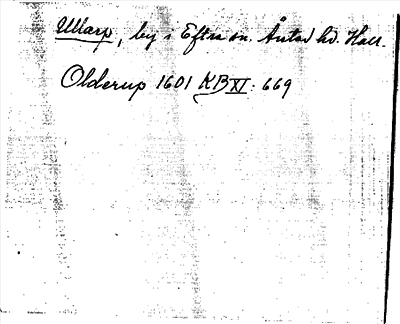 Ullarp, by i Eftra sn. Årstad hd. Hall.
Olderup 1601 KB XI: 669